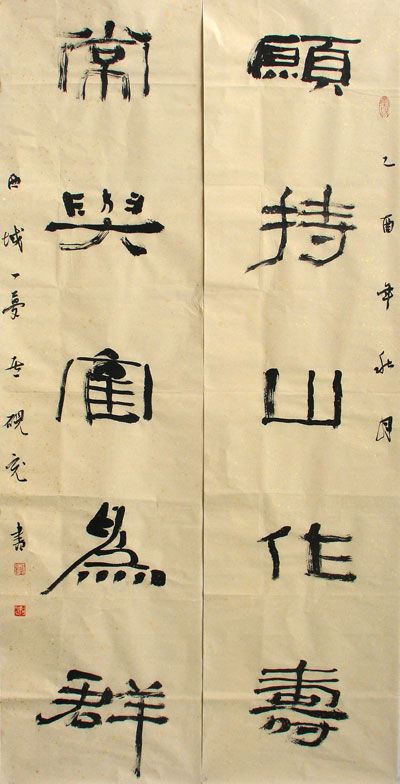 乙酉年秋月
願持山作壽
常與寉為群
西域一夢居硯書